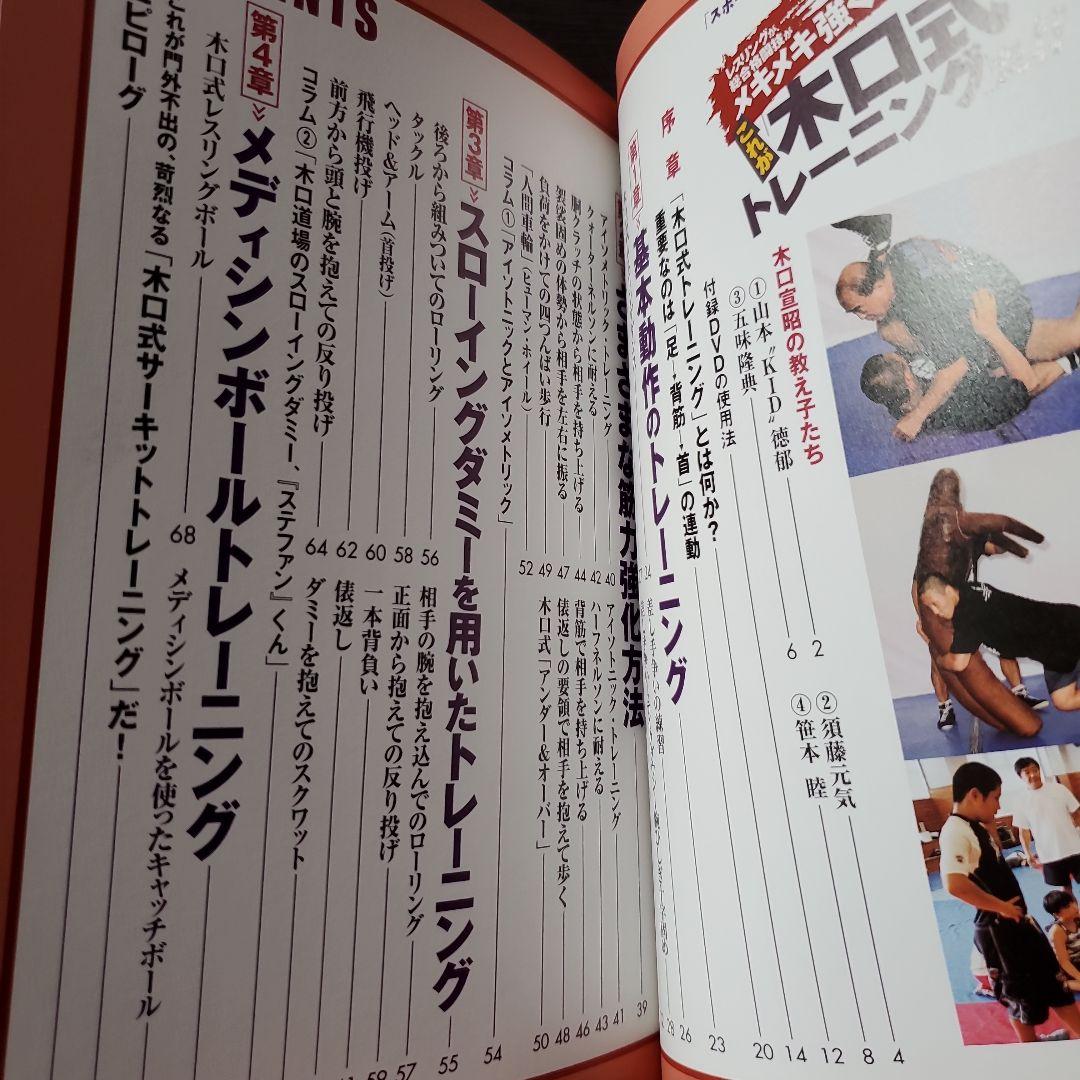 レスリングが、
総合格闘技が
メキメキ強く
これが
木口式
トレーニング
木口宣昭の教え子たち
①山本“KID”徳郁 2
②須藤元気 4
③五味隆典 6
④笹本 睦 8
付録DVDの使用法 12
序章
「木口式トレーニング」とは何か? 14
重要なのは「足→背筋→首」の連動 20
第1章 基本動作のトレーニング 23
さまざまな筋力強化方法 39
アイソメトリック・トレーニング 40
アイソトニック・トレーニング 41
クォーターネルソンに耐える 42
ハーフネルソンに耐える 43
胴クラッチの状態から相手を持ち上げる 44
背筋で相手を持ち上げる 46
袈裟固めの体勢から相手を左右に振る 47
俵返しの要領で相手を抱えて歩く 48
負荷をかけての四つんばい歩行 49
木口式「アンダー&オーバー」 50
「人間車輪」(ヒューマン・ホイール) 52
コラム①「アイソトニックとアイソメトリック」 54
第3章 スローイングダミーを用いたトレーニング 55
後ろから組みついてのローリング 56
相手の腕を抱え込んでのローリング 57
タックル 58
正面から抱えての反り投げ 59
ヘッド&アーム(首投げ) 60
一本背負い
飛行機投げ 62
俵返し
前方から頭と腕を抱えての反り投げ 64
ダミーを抱えてのスクワット
コラム②「木口道場のスローイングダミー、『ステファン』くん」
第4章 メディシンボールトレーニング
木口式レスリングボール 68
メディシンボールを使ったキャッチボール
これが門外不出の、苛烈なる「木口式サーキットトレーニング」だ!
エピローグ